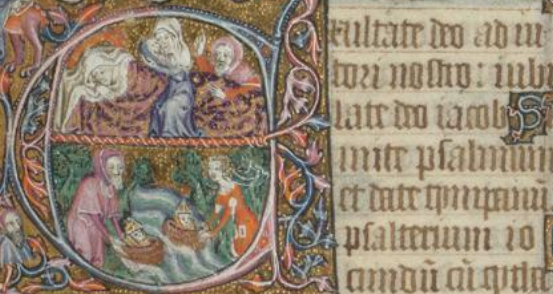 Exultate deo ad iu
tori nostro: iubi
late deo iacob S
mite psalmum
et date timpanū
psalterium io
cundū cū